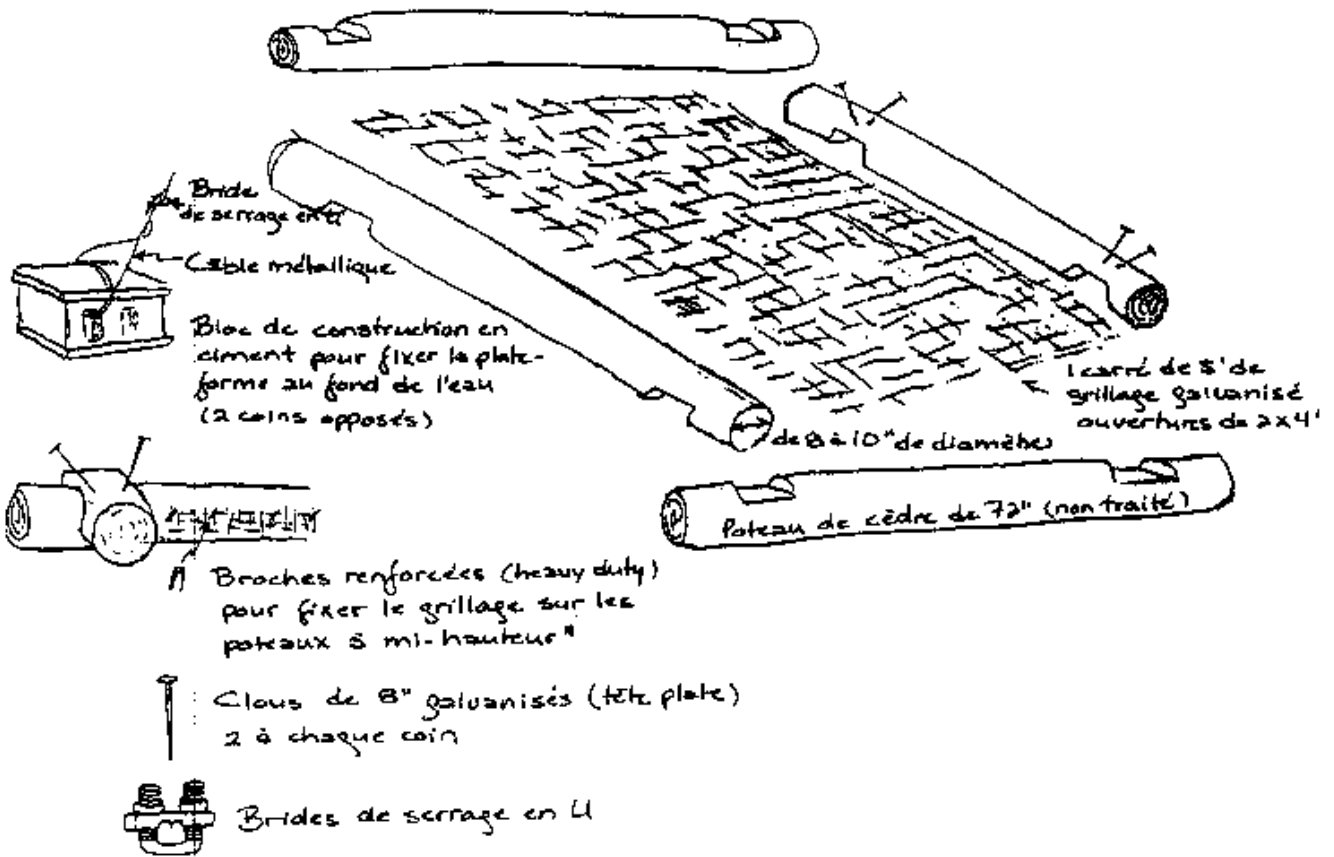 Bride
de serrage en U
Câble métallique
Bloc de construction en
ciment pour fixer la plate-
forme au fond de l'eau
(2 coins opposés)
1 carré de 5' de
grillage galvanisé
ouvertures de 2x4"
de 8 à 10" de diamètre
Poteau de cèdre de 72" (non traité)
Broches renforcées (heavy duty)
pour fixer le grillage sur les
poteaux à mi-hauteur"
Clous de 8" galvanisés (tête plate)
2 à chaque coin
Brides de serrage en U